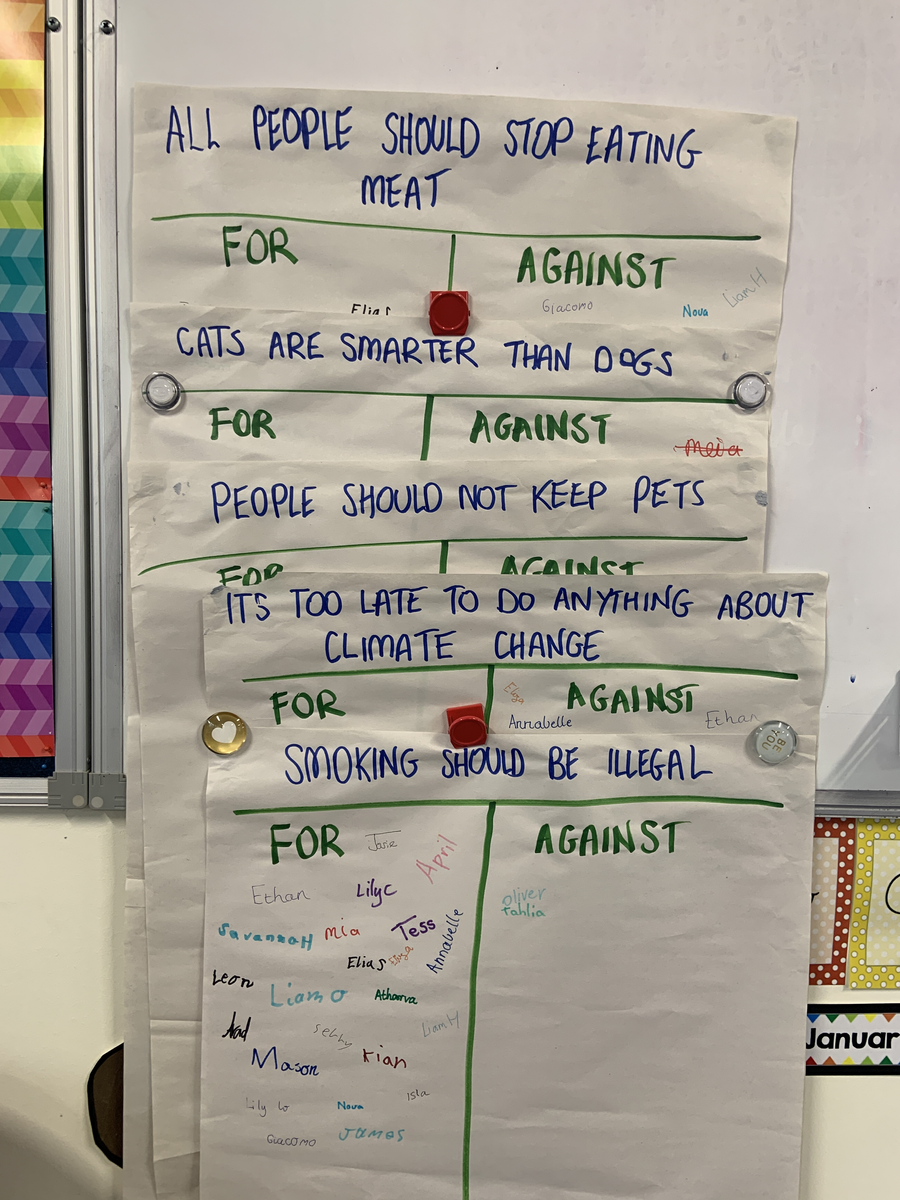 ALL PEOPLE SHOULD STOP EATING
MEAT
FOR
AGAINST
Elias
Giacomo
Nova
Liam H
CATS ARE SMARTER THAN DOGS
FOR
AGAINST
meia
PEOPLE SHOULD NOT KEEP PETS
FOR
AGAINST
ITS TOO LATE TO DO ANYTHING ABOUT
CLIMATE CHANGE
FOR
AGAINST
Eliza
Annabelle
Ethan
BE
YOU
SMOKING SHOULD BE ILLEGAL
FOR
Josie
April
Ethan
Lily C
Savannah
mia
Tess
Annabelle
Elias
Eliza
Leon
Liam O
Atharva
Sebby
Liam H
Mason
Kian
Isla
Lily W
Nova
Giacomo
James
AGAINST
oliver
Tahlia
Januar